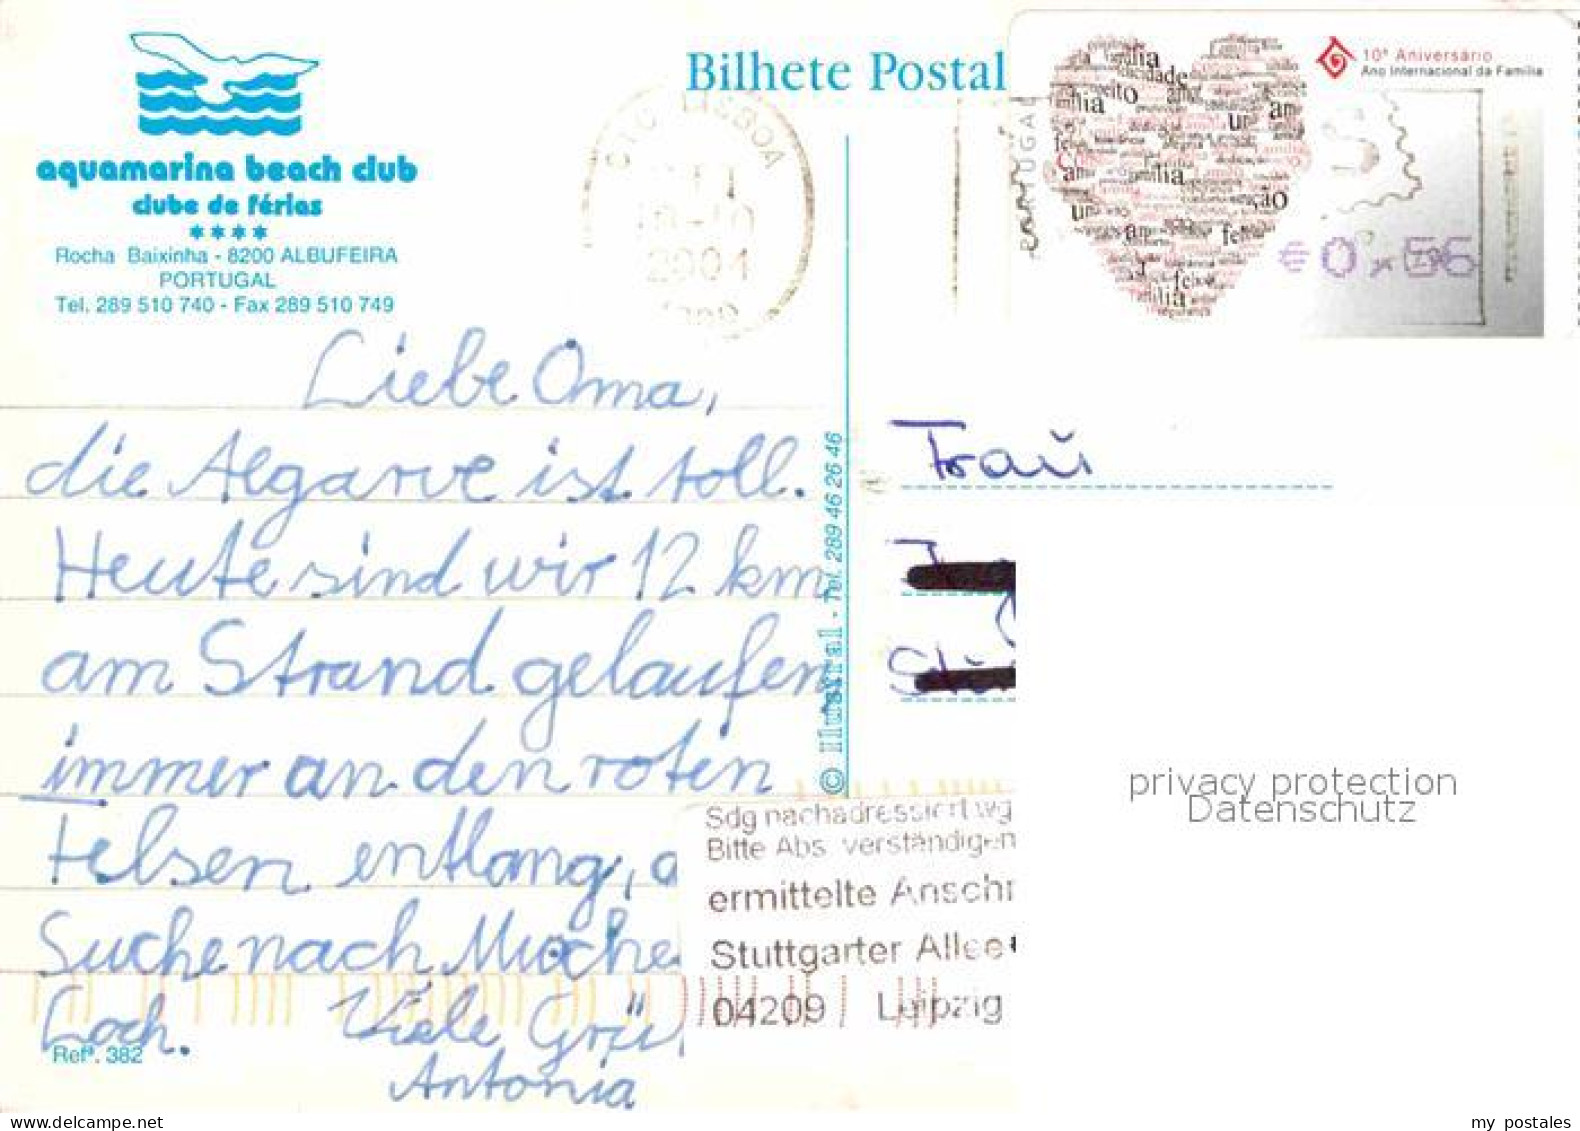 Bilhete Postal
aquamarina beach club
clube de férias
****
Rocha Baixinha - 8200 ALBUFEIRA
PORTUGAL
Tel. 289 510 740 - Fax 289 510 749
LISBOA
2004
PORTUGAL
10º Aniversário
Ano Internacional da Família
€0,56
Liebe Oma,
die Algarve ist toll.
Heute sind wir 12 km
am Strand gelaufen
immer an den roten
Felsen entlang,
Suche nach
Loch. Viele Grü
Antonia
Refª. 382
© ilustral - Tel. 289 46 26 46
Frau
Sdg nachadressiert wg
Bitte Abs. verständigen
ermittelte Anschr
Stuttgarter Allee
04209 Leipzig
privacy protection
Datenschutz
my postales